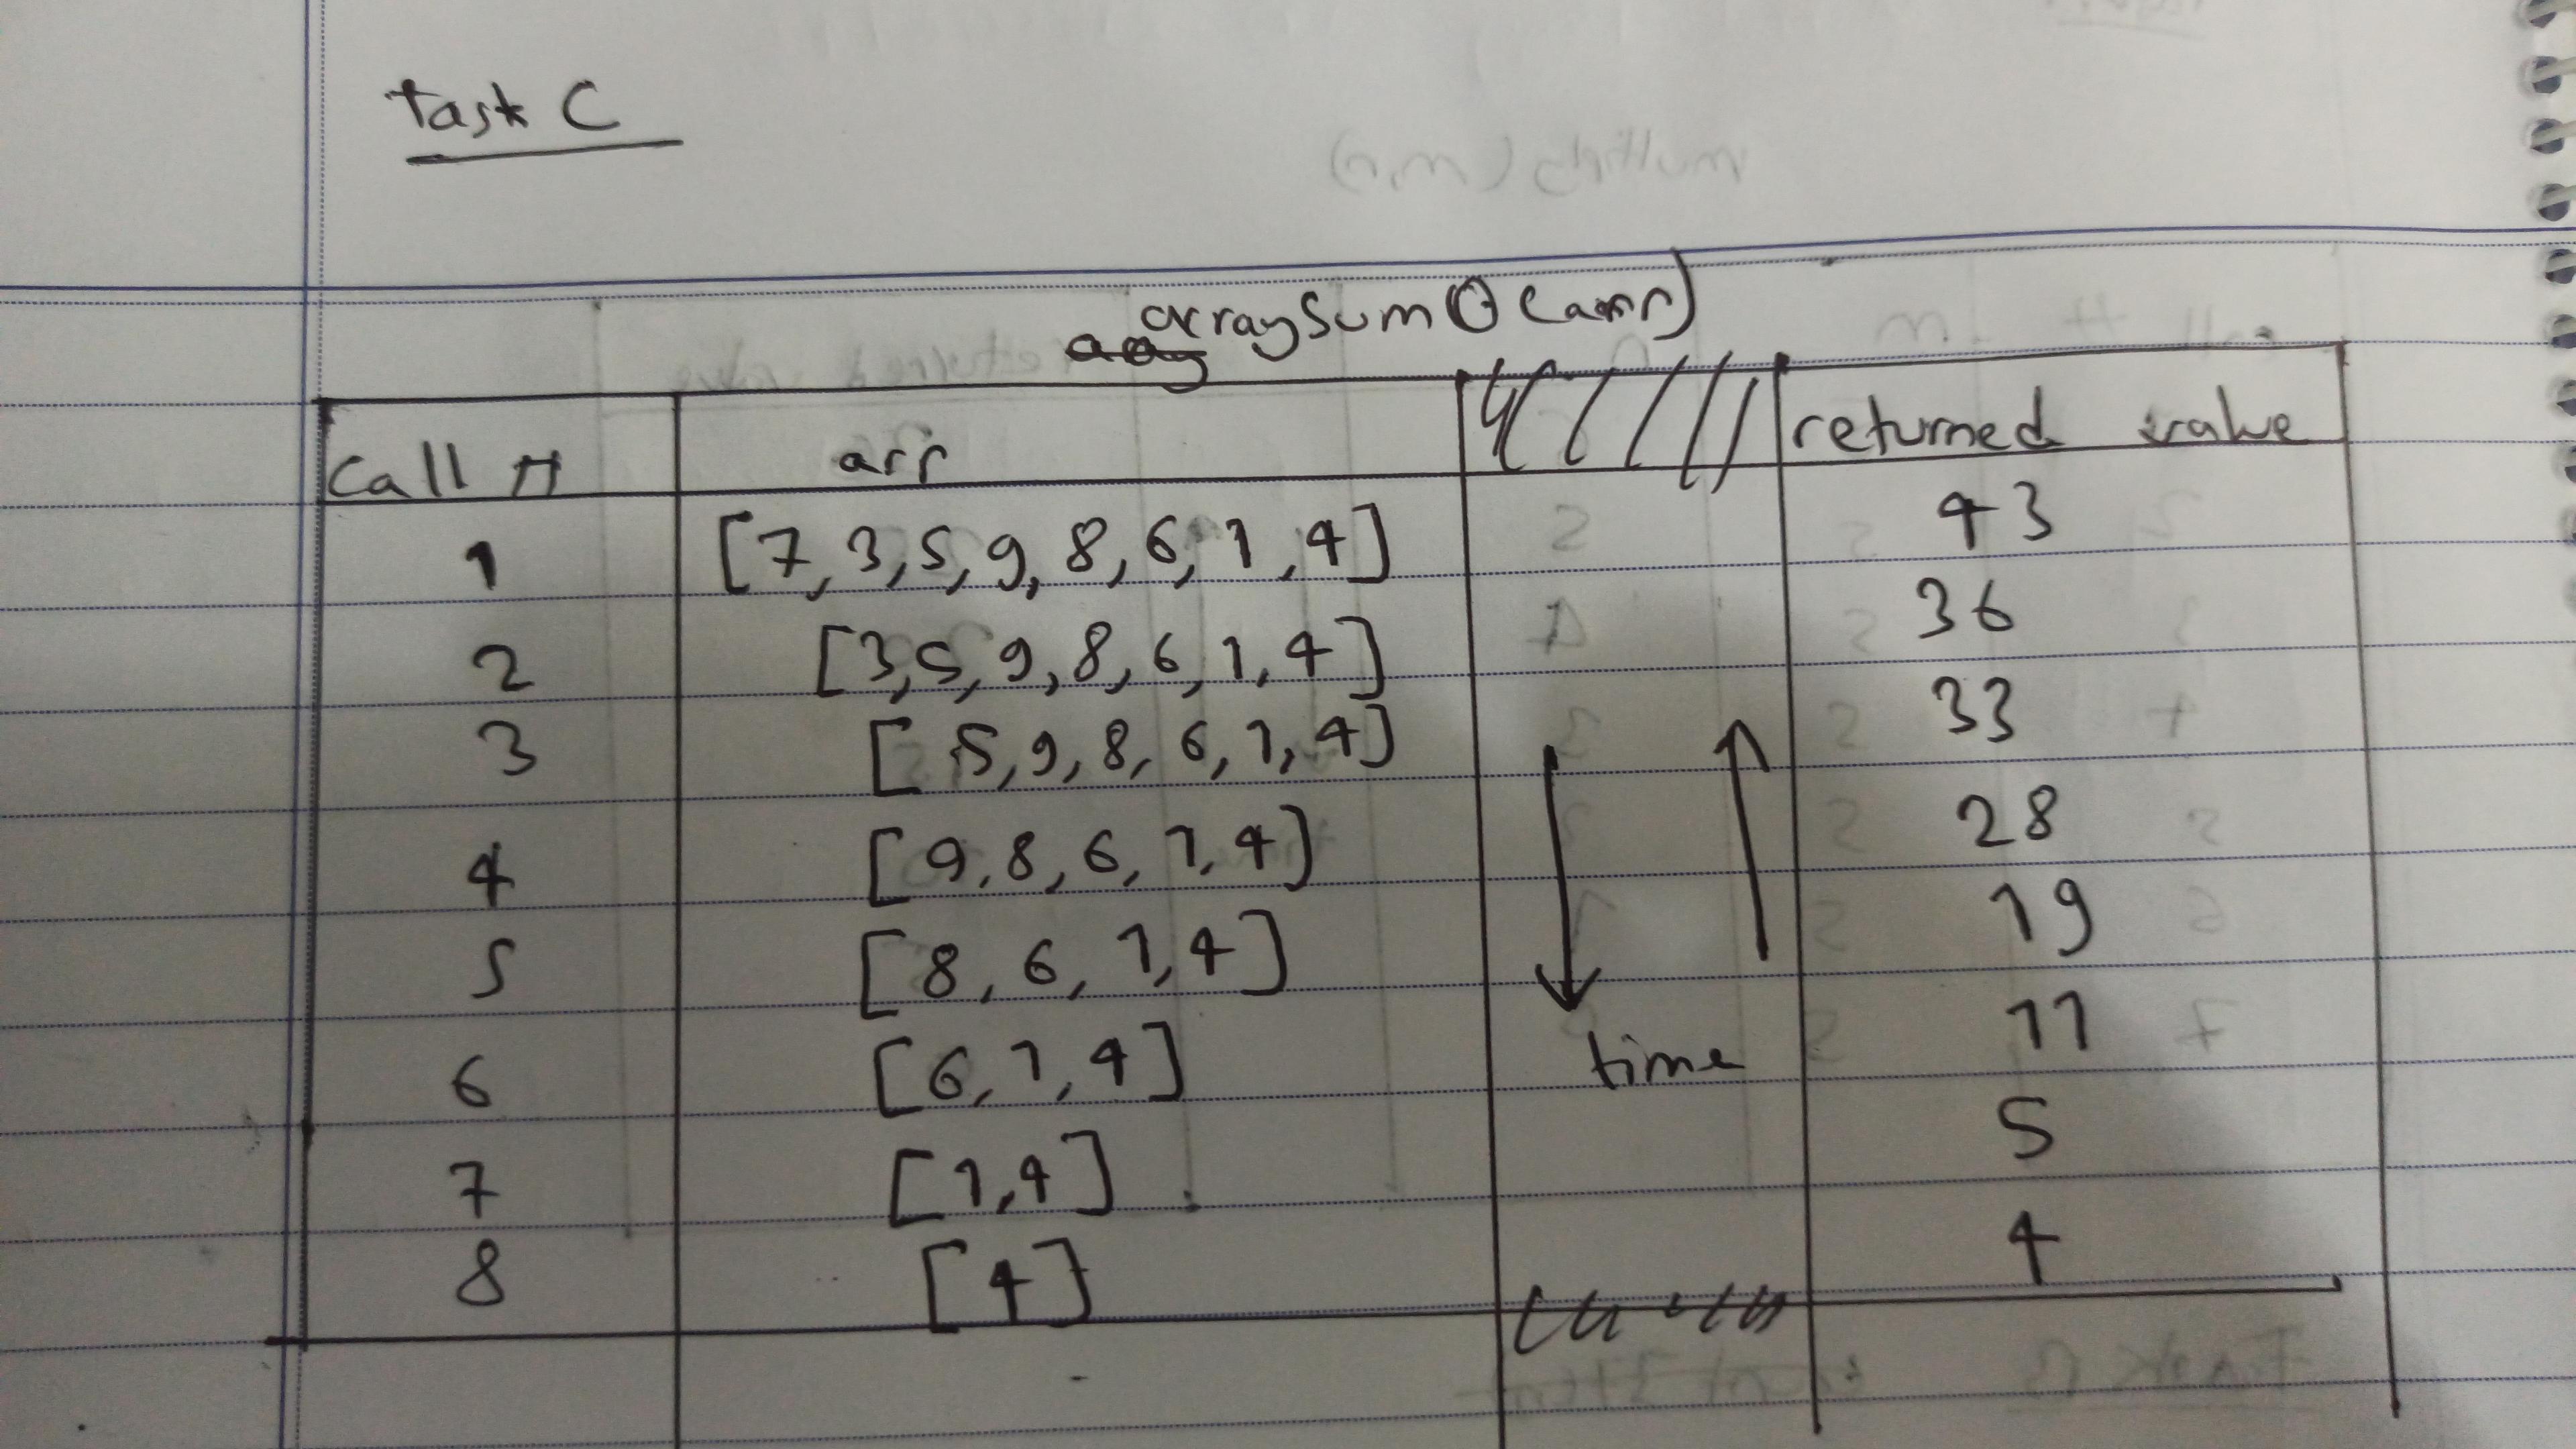 Task C
arraySum (arr)
Call # arr returned value
1 [7,3,5,9,8,6,1,4] 43
2 [3,5,9,8,6,1,4] 36
3 [5,9,8,6,1,4] 33
4 [9,8,6,1,4] 28
5 [8,6,1,4] 19
6 [6,1,4] 11
time
7 [1,4] 5
8 [4] 4